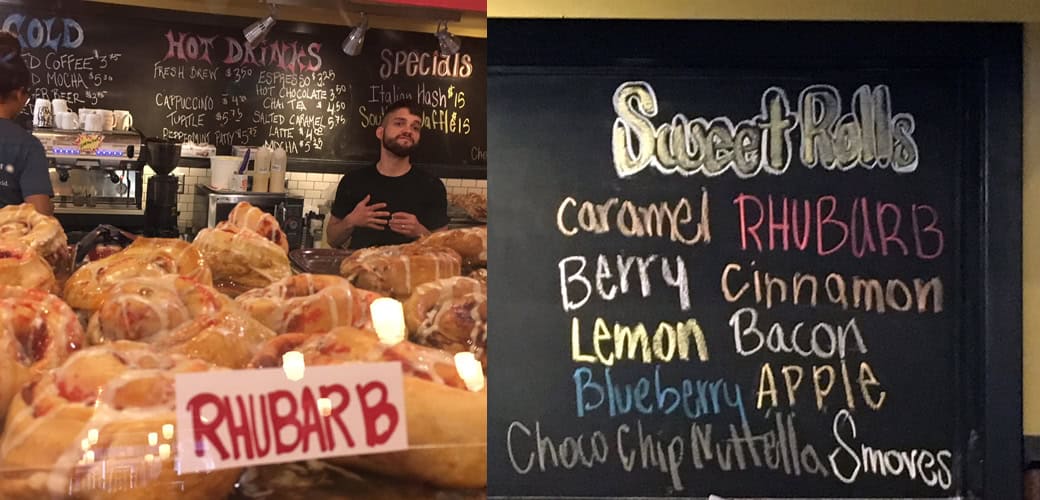 COLD
D COFFEE $3
D MOCHA $5
BEER
HOT DRINKS
FRESH BREW $3.50
CAPPUCCINO
TURTLE
PEPPERMINT PATTY
ESPRESSO $3.25
HOT CHOCOLATE 3.50
CHAI TEA $4.50
SALTED CARAMEL 5.75
LATTE
MOCHA
Specials
Italian Hash $15
Waffle $15
RHUBARB
Sweet Rolls
caramel RHUBARB
Berry Cinnamon
Lemon Bacon
Blueberry APPLE
Choco Chip Nuttella Smores